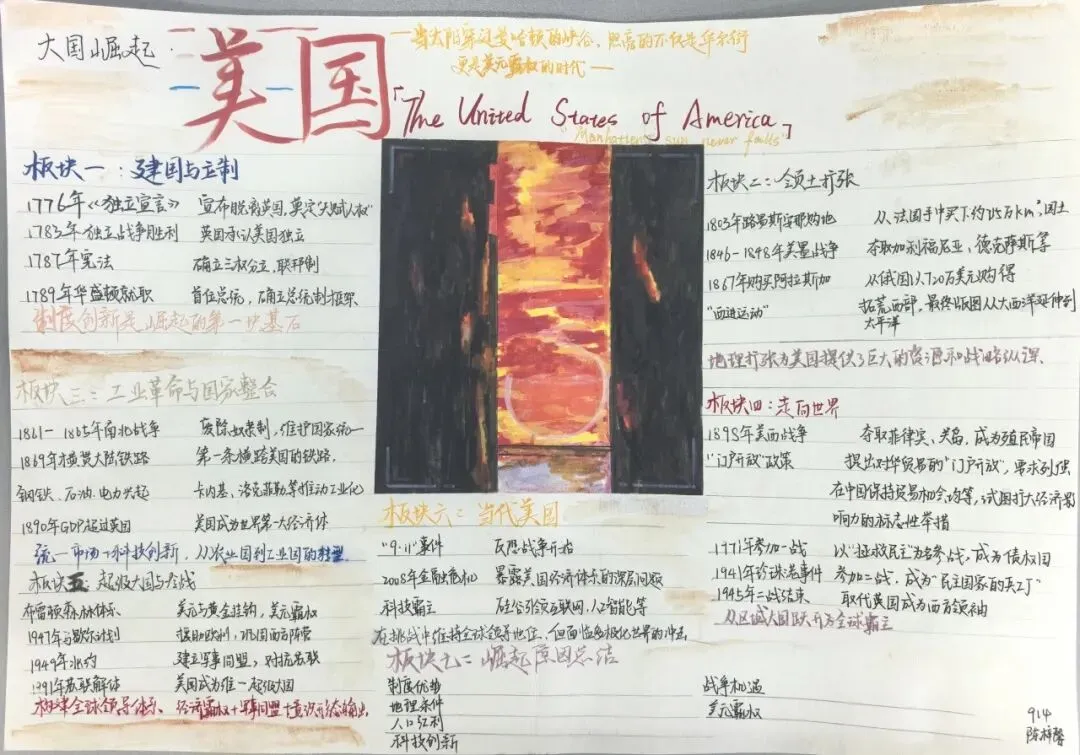 大国崛起
美国
—当太阳穿过曼哈顿的峡谷，照亮的不仅是华尔街
更是美元霸权的时代—
「The United States of America」
"Manhattan's sun never falls"
板块一：建国与立制
1776年《独立宣言》 宣布脱离英国，奠定"天赋人权"
1783年独立战争胜利 英国承认美国独立
1787年宪法 确立三权分立，联邦制
1789年华盛顿就职 首任总统，确立总统制框架
制度创新是崛起的第一块基石
板块二：领土扩张
1803年路易斯安那购地 从法国手中买下约215万km²国土
1846-1848年美墨战争 夺取加利福尼亚，德克萨斯等
1867年购买阿拉斯加 从俄国以720万美元购得
"西进运动" 拓荒西部，最终版图从大西洋延伸到
太平洋
地理扩张为美国提供了巨大的资源和战略纵深.
板块三：工业革命与国家整合
1861-1865年南北战争 废除奴隶制，维护国家统一
1869年横贯大陆铁路 第一条横跨美国的铁路.
钢铁、石油、电力兴起 卡内基、洛克菲勒等推动工业化
1890年GDP超过英国 美国成为世界第一大经济体
统一市场+科技创新，从农业国到工业国的转型
板块四：走向世界
1898年美西战争 夺取菲律宾、关岛，成为殖民帝国
"门户开放"政策 提出对华贸易的"门户开放"，要求列强
在中国保持贸易机会均等，试图扩大经济影
响力的标志性举措
1971年参加一战 以"拯救民主"为名参战，成为债权国
1941年珍珠港事件 参加二战，成为"民主国家的兵工厂"
1945年二战结束 取代英国成为西方领袖
从区域大国跃升为全球霸主
板块五：超级大国与冷战
布雷顿森林体系 美元与黄金挂钩，美元霸权
1947年马歇尔计划 援助欧洲，巩固西方阵营
1949年北约 建立军事同盟，对抗苏联
1991年苏联解体 美国成为唯一超级大国
构建全球领导体系、经济霸权+军事同盟+意识形态输出
板块六：当代美国
"9·11"事件 反恐战争开始
2008年金融危机 暴露美国经济体系的深层问题
科技霸主 硅谷引领互联网，人工智能等
在挑战中维持全球领导地位，但面临多极化世界的冲击
板块七：崛起原因总结
制度优势
地理条件
人口红利
科技创新
战争机遇
美元霸权
914